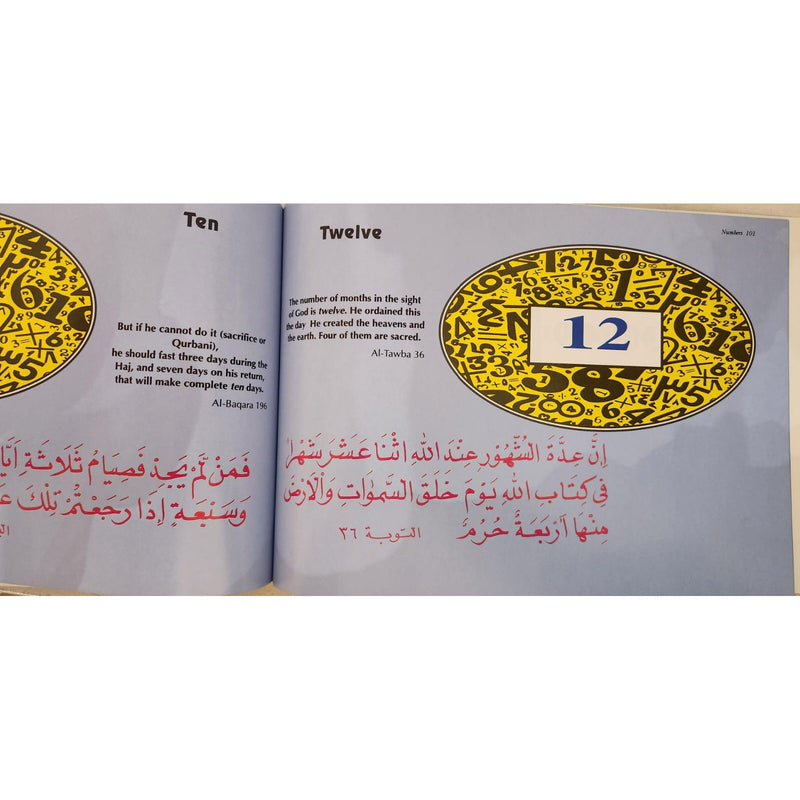 Ten
But if he cannot do it (sacrifice or
Qurbani),
he should fast three days during the
Haj, and seven days on his return,
that will make complete ten days.
Al-Baqara 196
فَمَنْ لَمْ يَجِدْ فَصِيَامُ ثَلَاثَةِ
وَسَبْعَةٍ إِذَا رَجَعْتُمْ تِلْكَ
Twelve
Numbers 101
The number of months in the sight
of God is twelve. He ordained this
the day He created the heavens and
the earth. Four of them are sacred.
Al-Tawba 36
12
إِنَّ عِدَّةَ الشُّهُورِ عِنْدَ اللهِ اثْنَا عَشَرَ شَهْرًا
فِي كِتَابِ اللهِ يَوْمَ خَلَقَ السَّمٰوَاتِ وَالْاَرْضَ
مِنْهَا اَرْبَعَةٌ حُرُمٌ التوبة ٣٦